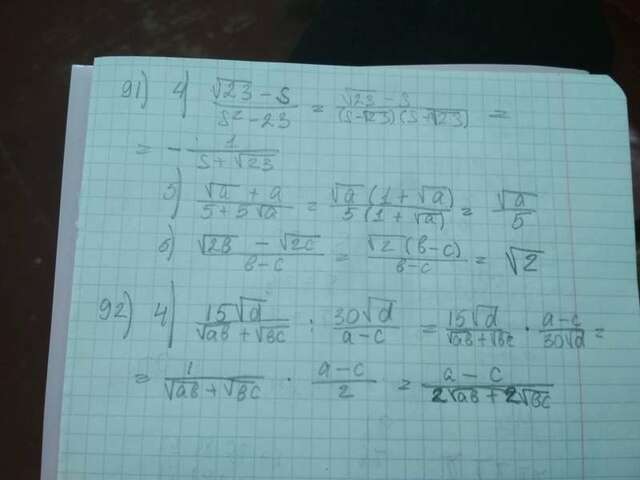 91) 4) (√23 - s)/(s² - 23) = (√23 - s)/((s-√23)(s+√23)) =
= - 1/(s + √23)
5) (√a + a)/(5 + 5√a) = (√a (1 + √a))/(5 (1 + √a)) = √a/5
6) (√2в - √2c)/(в - c) = (√2 (в - c))/(в - c) = √2
92) 4) 15√d/(√aв + √вc) : 30√d/(a - c) = 15√d/(√aв + √вc) · (a - c)/30√d =
= 1/(√aв + √вc) · (a - c)/2 = (a - c)/(2√aв + 2√вc)